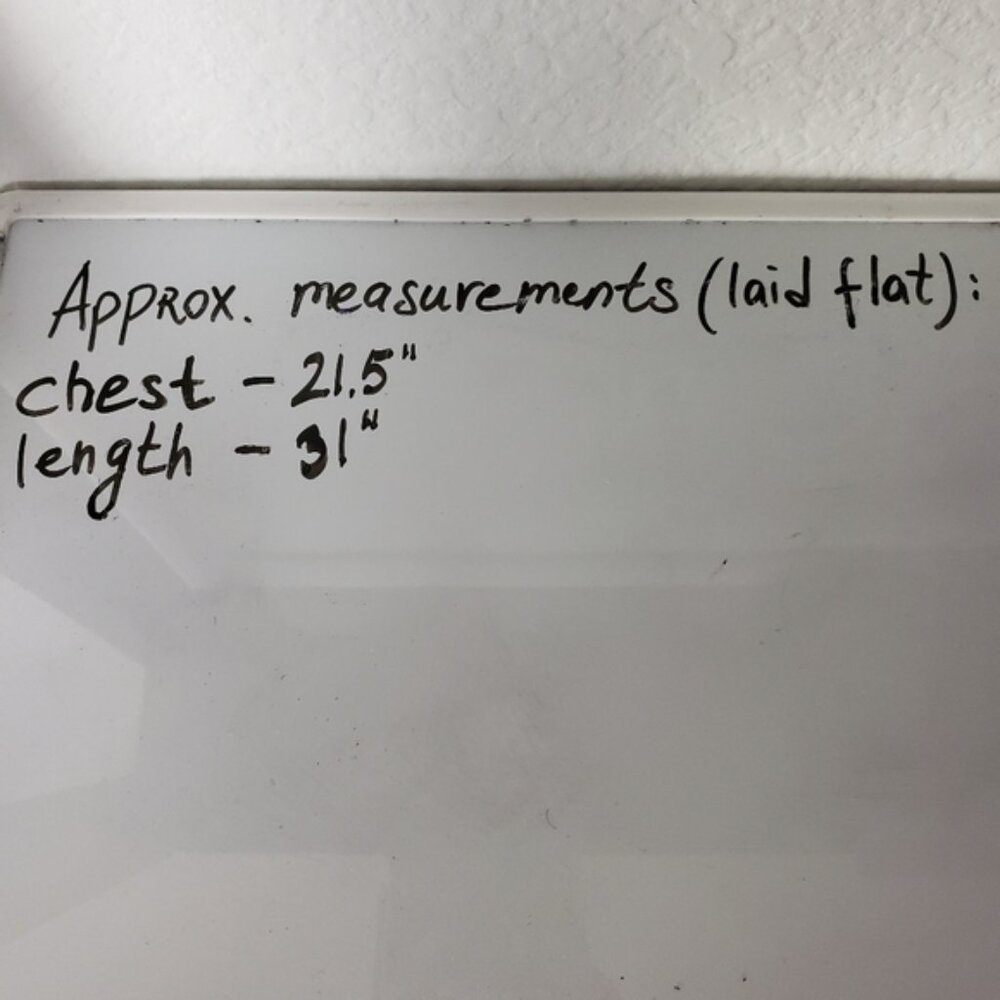 Approx. measurements (laid flat):
chest - 21.5"
length - 31"